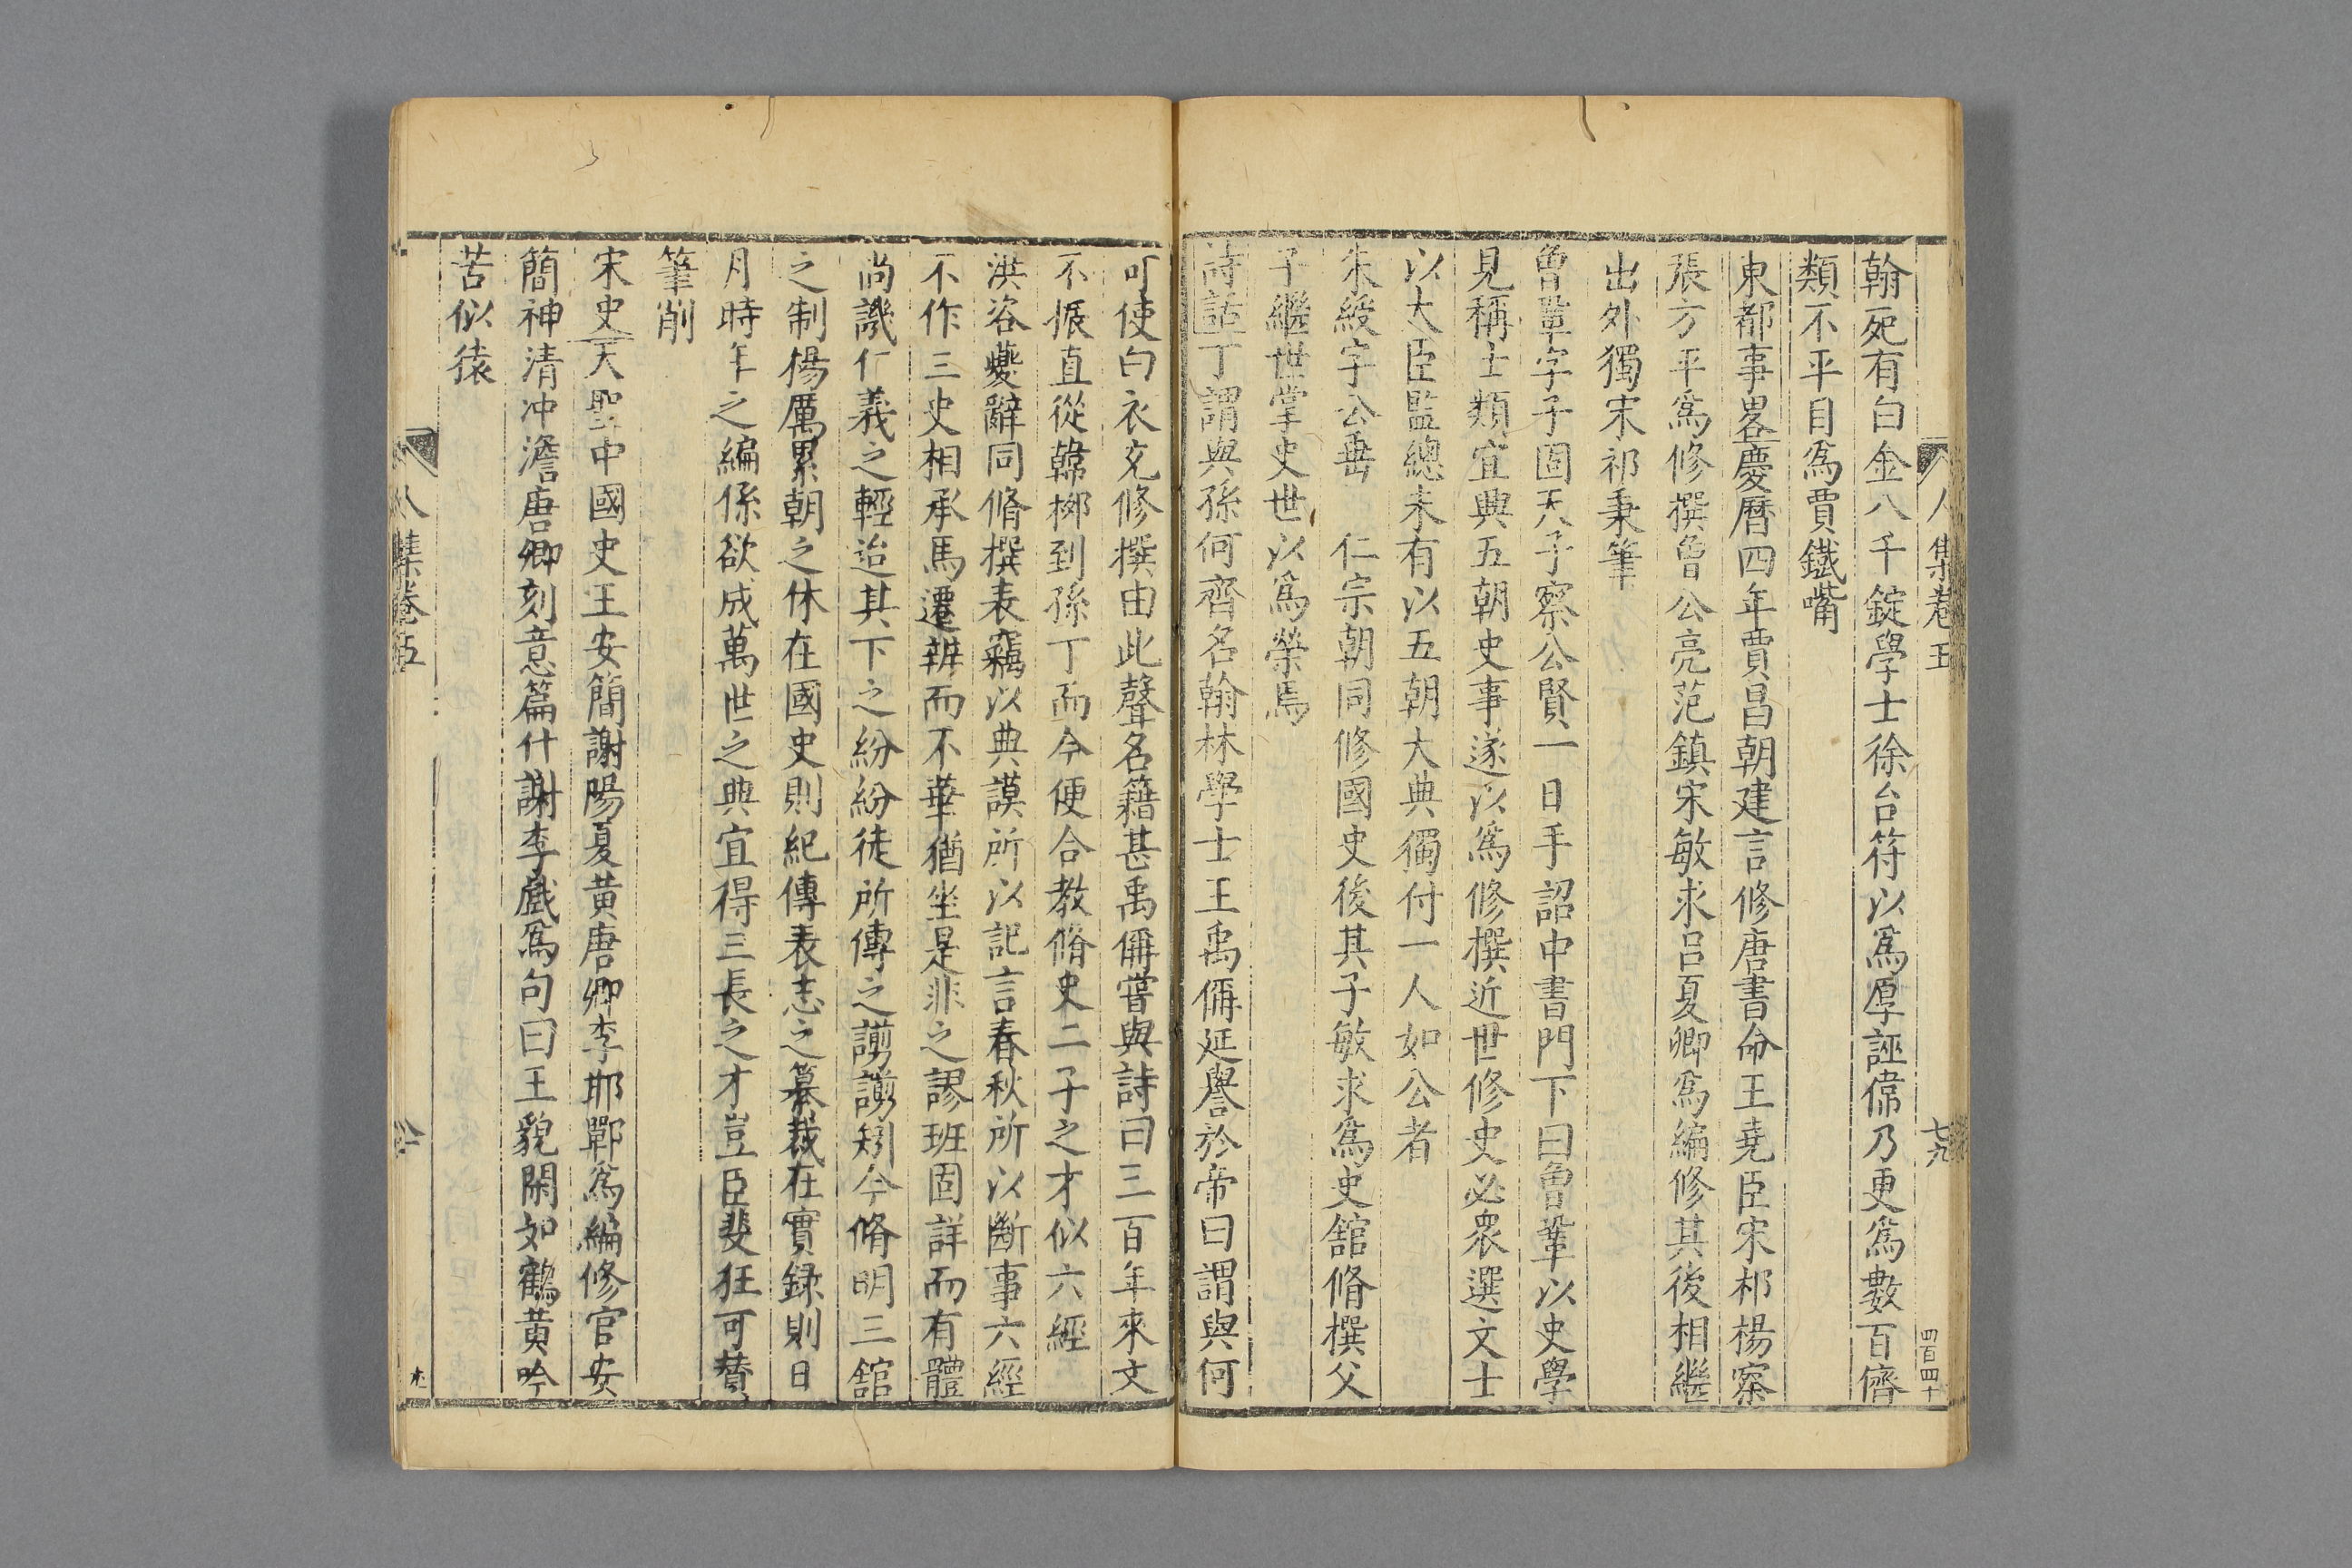 人集卷五
七九
四百四十
翰死有白金八千錠學士徐台符以爲厚誣偉乃更爲數百儕
類不平目爲賈鐵嘴
東都事畧慶曆四年賈昌朝建言修唐書命王堯臣宋祁楊察
張方平爲修撰曾公亮范鎮宋敏求呂夏卿爲編修其後相繼
出外獨宋祁秉筆
曾鞏字子固天子察公賢一日手詔中書門下曰曾鞏以史學
見稱士類宜典五朝史事遂以爲修撰近世修史必衆選文士
以大臣監總未有以五朝大典獨付一人如公者
宋綬字公垂 仁宗朝同修國史後其子敏求爲史舘脩撰父
子繼世掌史世以爲榮焉
詩話丁謂與孫何齊名翰林學士王禹偁延譽於帝曰謂與何
可使白衣充修撰由此聲名籍甚禹偁嘗與詩曰三百年來文
不振直從韓柳到孫丁而今便合教脩史二子之才似六經
洪咨夔辭同脩撰表竊以典謨所以記言春秋所以斷事六經
不作三史相承馬遷辨而不華猶坐是非之謬班固詳而有體
尚譏仁義之輕迨其下之紛紛徒所傳之謭謭矧今脩明三舘
之制楊厲累朝之休在國史則紀傳表志之纂裁在實録則日
月時年之編係欲成萬世之典宜得三長之才豈臣斐狂可賛
筆削
宋史天聖中國史王安簡謝陽夏黃唐卿李邯鄲爲編修官安
簡神清冲澹唐卿刻意篇什謝李戲爲句曰王貌閑如鶴黃吟
苦似猿
人集卷五